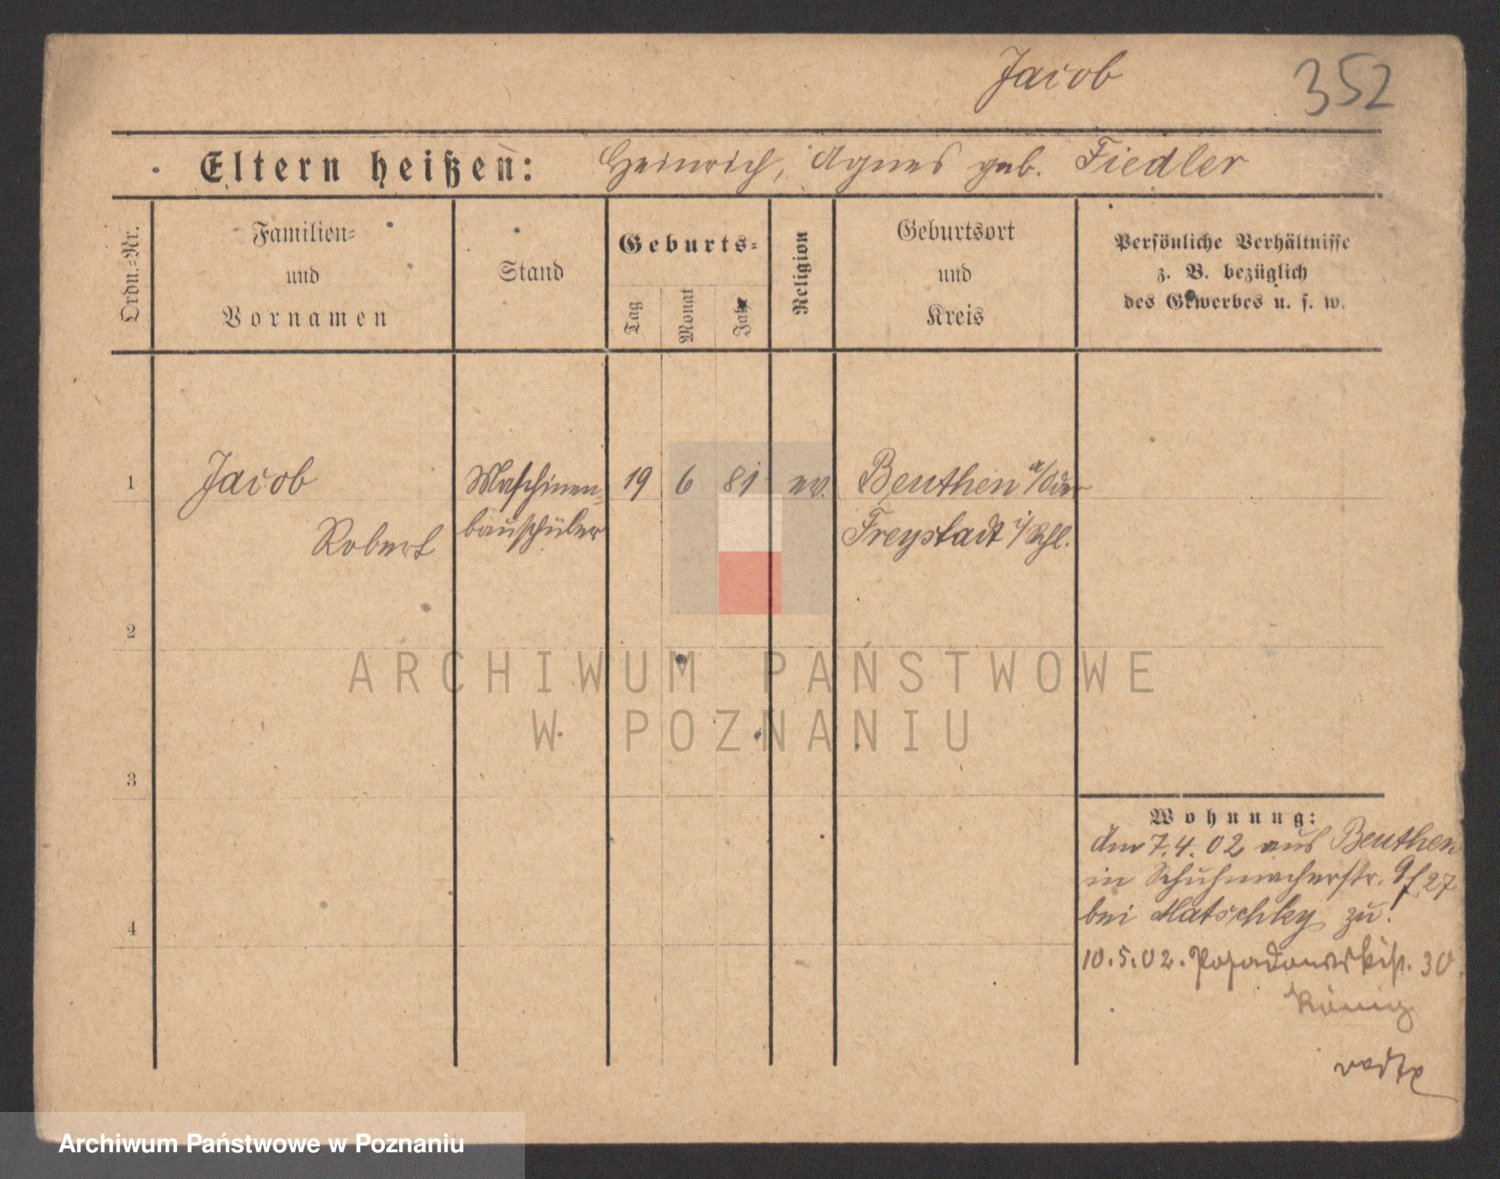 Jacob 352
Eltern heißen: Heinrich, Agnes geb. Fiedler
Ordn.-Nr.
Familien-
und
Vornamen
Stand
Geburts-
Tag
Monat
Jahr
Religion
Geburtsort
und
Kreis
Persönliche Verhältnisse
z. B. bezüglich
des Gewerbes u. s. w.
1 Jacob Maschinen- 19 6 81 ev. Beuthen a/Oder
Robert bauschüler Freystadt i/Schl.
2
ARCHIWUM PAŃSTWOWE
W POZNANIU
3
Wohnung:
Am 7.4.02 aus Beuthen
in Schuhmacherstr. 27
bei Matschky zu.
4
10.5.02. Posadowskistr. 30
König
Archiwum Państwowe w Poznaniu